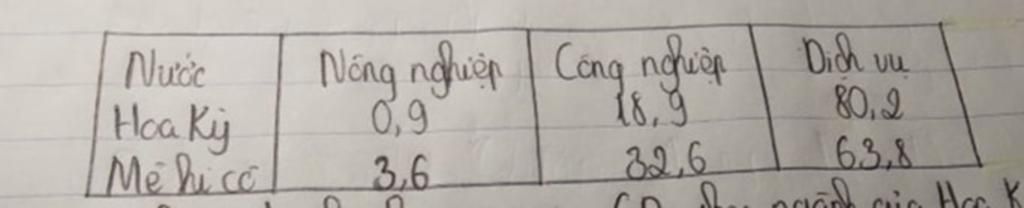 Nước Nông nghiệp Công nghiệp Dịch vụ
Hoa Kỳ 0,9 18,9 80,2
Mê hi cô 3,6 32,6 63,8
ngành của Hoa K